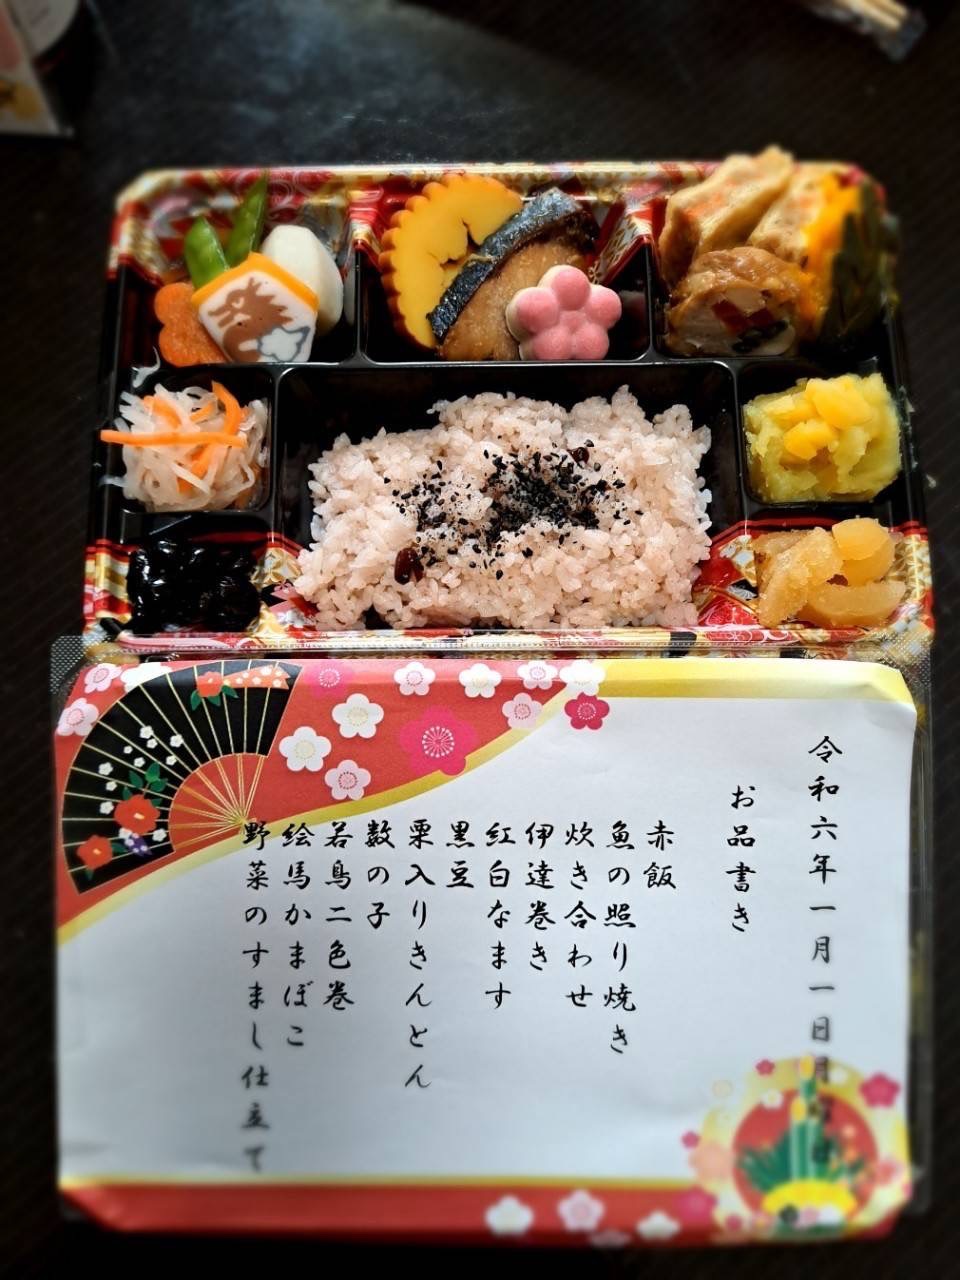 令和六年一月一日月曜日
お品書き
赤飯
魚の照り焼き
炊き合わせ
伊達巻き
紅白なます
黒豆
栗入りきんとん
数の子
若鳥二色巻
絵馬かまぼこ
野菜のすまし仕立て